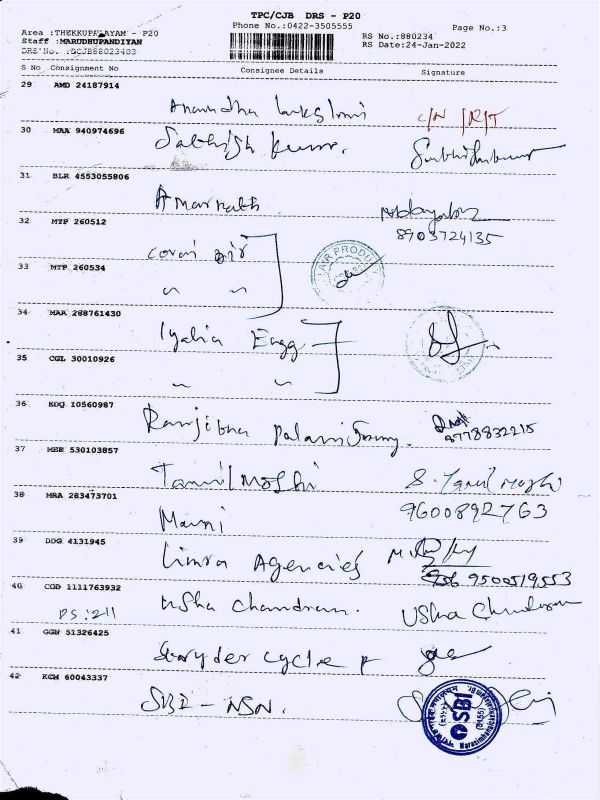 TPC/CJB DRS - P20
Phone No.:0422-3505555
Page No.:3
Area :THEKKUPALAYAM - P20
Staff :MARUDHUPANDIYAN
DRS No. :SCJB88023403
RS No.:880234
RS Date:24-Jan-2022
S No Consignment No Consignee Details Signature
29 AMD 24187914
Anandha lakshmi C/N /R/T
30 MAA 940974696
Sathish Kumar.
31 BLR 4553055806
Amarnath
8903724135
32 MTP 260512
covai air
AIR PRODU
33 MTP 260534
" "
34 MAA 288761430
Iyalia Engg
35 CGL 30010926
" "
36 BDQ 10560987
Ranjitha Palanisamy.
8778832215
37 MEE 530103857
Tamil Mozhi S. Tamil Mozhi
38 MRA 283473701
Mani 9600892763
39 DDG 4131945
Limra Agencies
9500519553
40 CGD 1111763932
PS:211 Usha Chandran. Usha Chandran
41 GGN 51326425
Stryder cycle P
42 KGM 60043337
SBI - NSN.
SBI